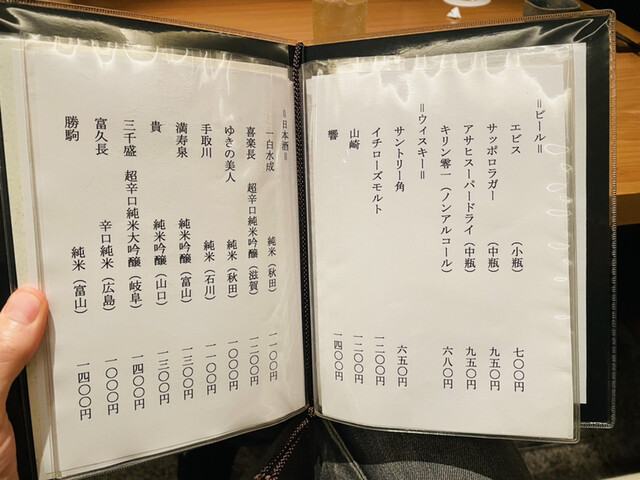 ＝ビール＝
エビス （小瓶） 七〇〇円
サッポロラガー （中瓶） 九五〇円
アサヒスーパードライ （中瓶） 九五〇円
キリン零一 （ノンアルコール） 六八〇円
＝ウィスキー＝
サントリー角 六五〇円
イチローズモルト 一二〇〇円
山崎 一二〇〇円
響 一四〇〇円
＝日本酒＝
一白水成 純米（秋田） 一一〇〇円
喜楽長 超辛口純米吟醸（滋賀） 一二〇〇円
ゆきの美人 純米（秋田） 一〇〇〇円
手取川 純米（石川） 一一〇〇円
満寿泉 純米吟醸（富山） 一三〇〇円
貴 純米吟醸（山口） 一三〇〇円
三千盛 超辛口純米大吟醸（岐阜） 一四〇〇円
富久長 辛口純米（広島） 一〇〇〇円
勝駒 純米（富山） 一四〇〇円